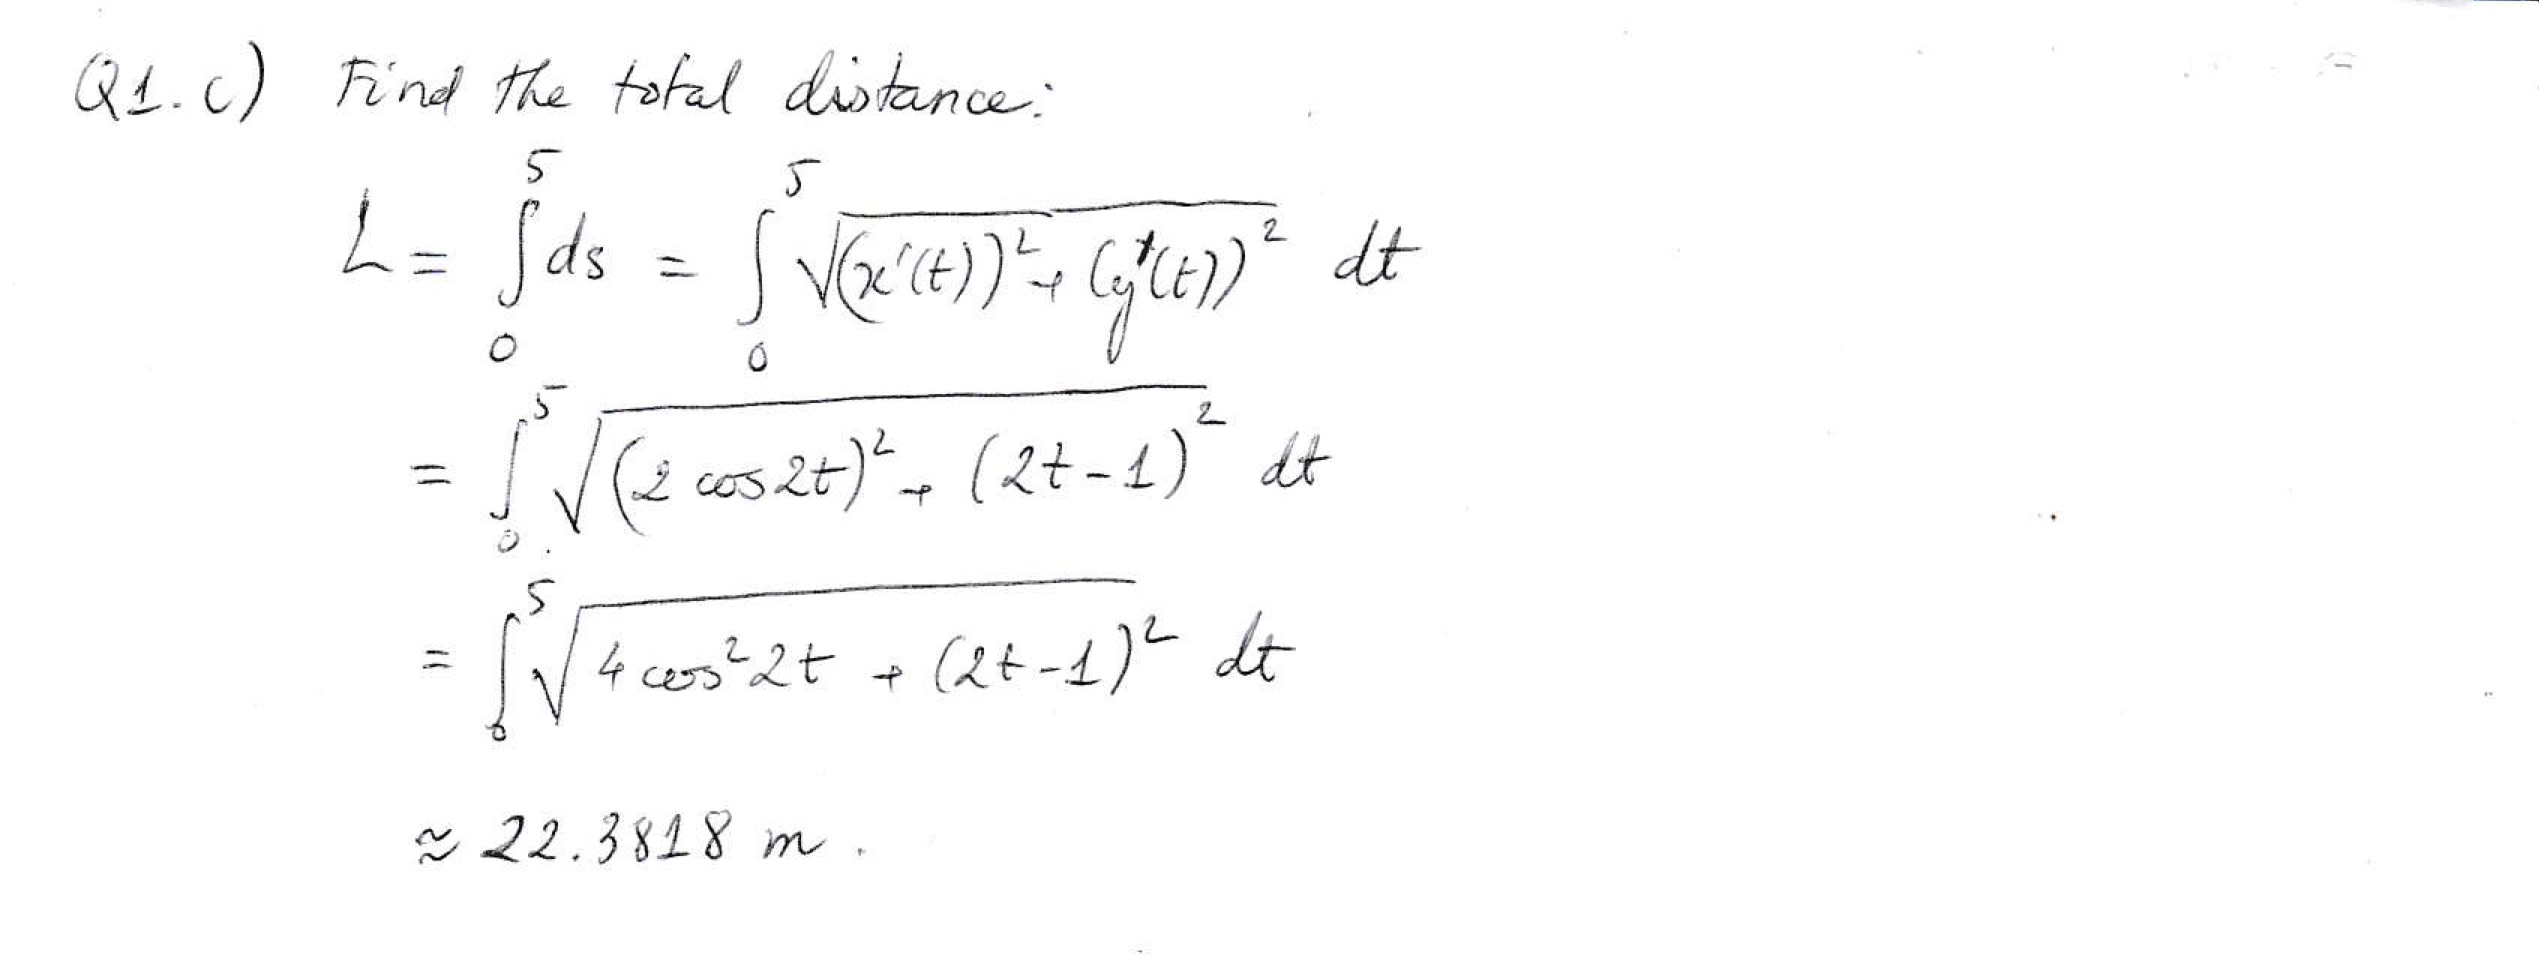 Q1.c) Find the total distance:
L = ∫₀⁵ ds = ∫₀⁵ √((x'(t))² + (y'(t))²) dt
= ∫₀⁵ √((2 cos2t)² + (2t-1)²) dt
= ∫₀⁵ √(4 cos²2t + (2t-1)²) dt
≈ 22.3818 m.